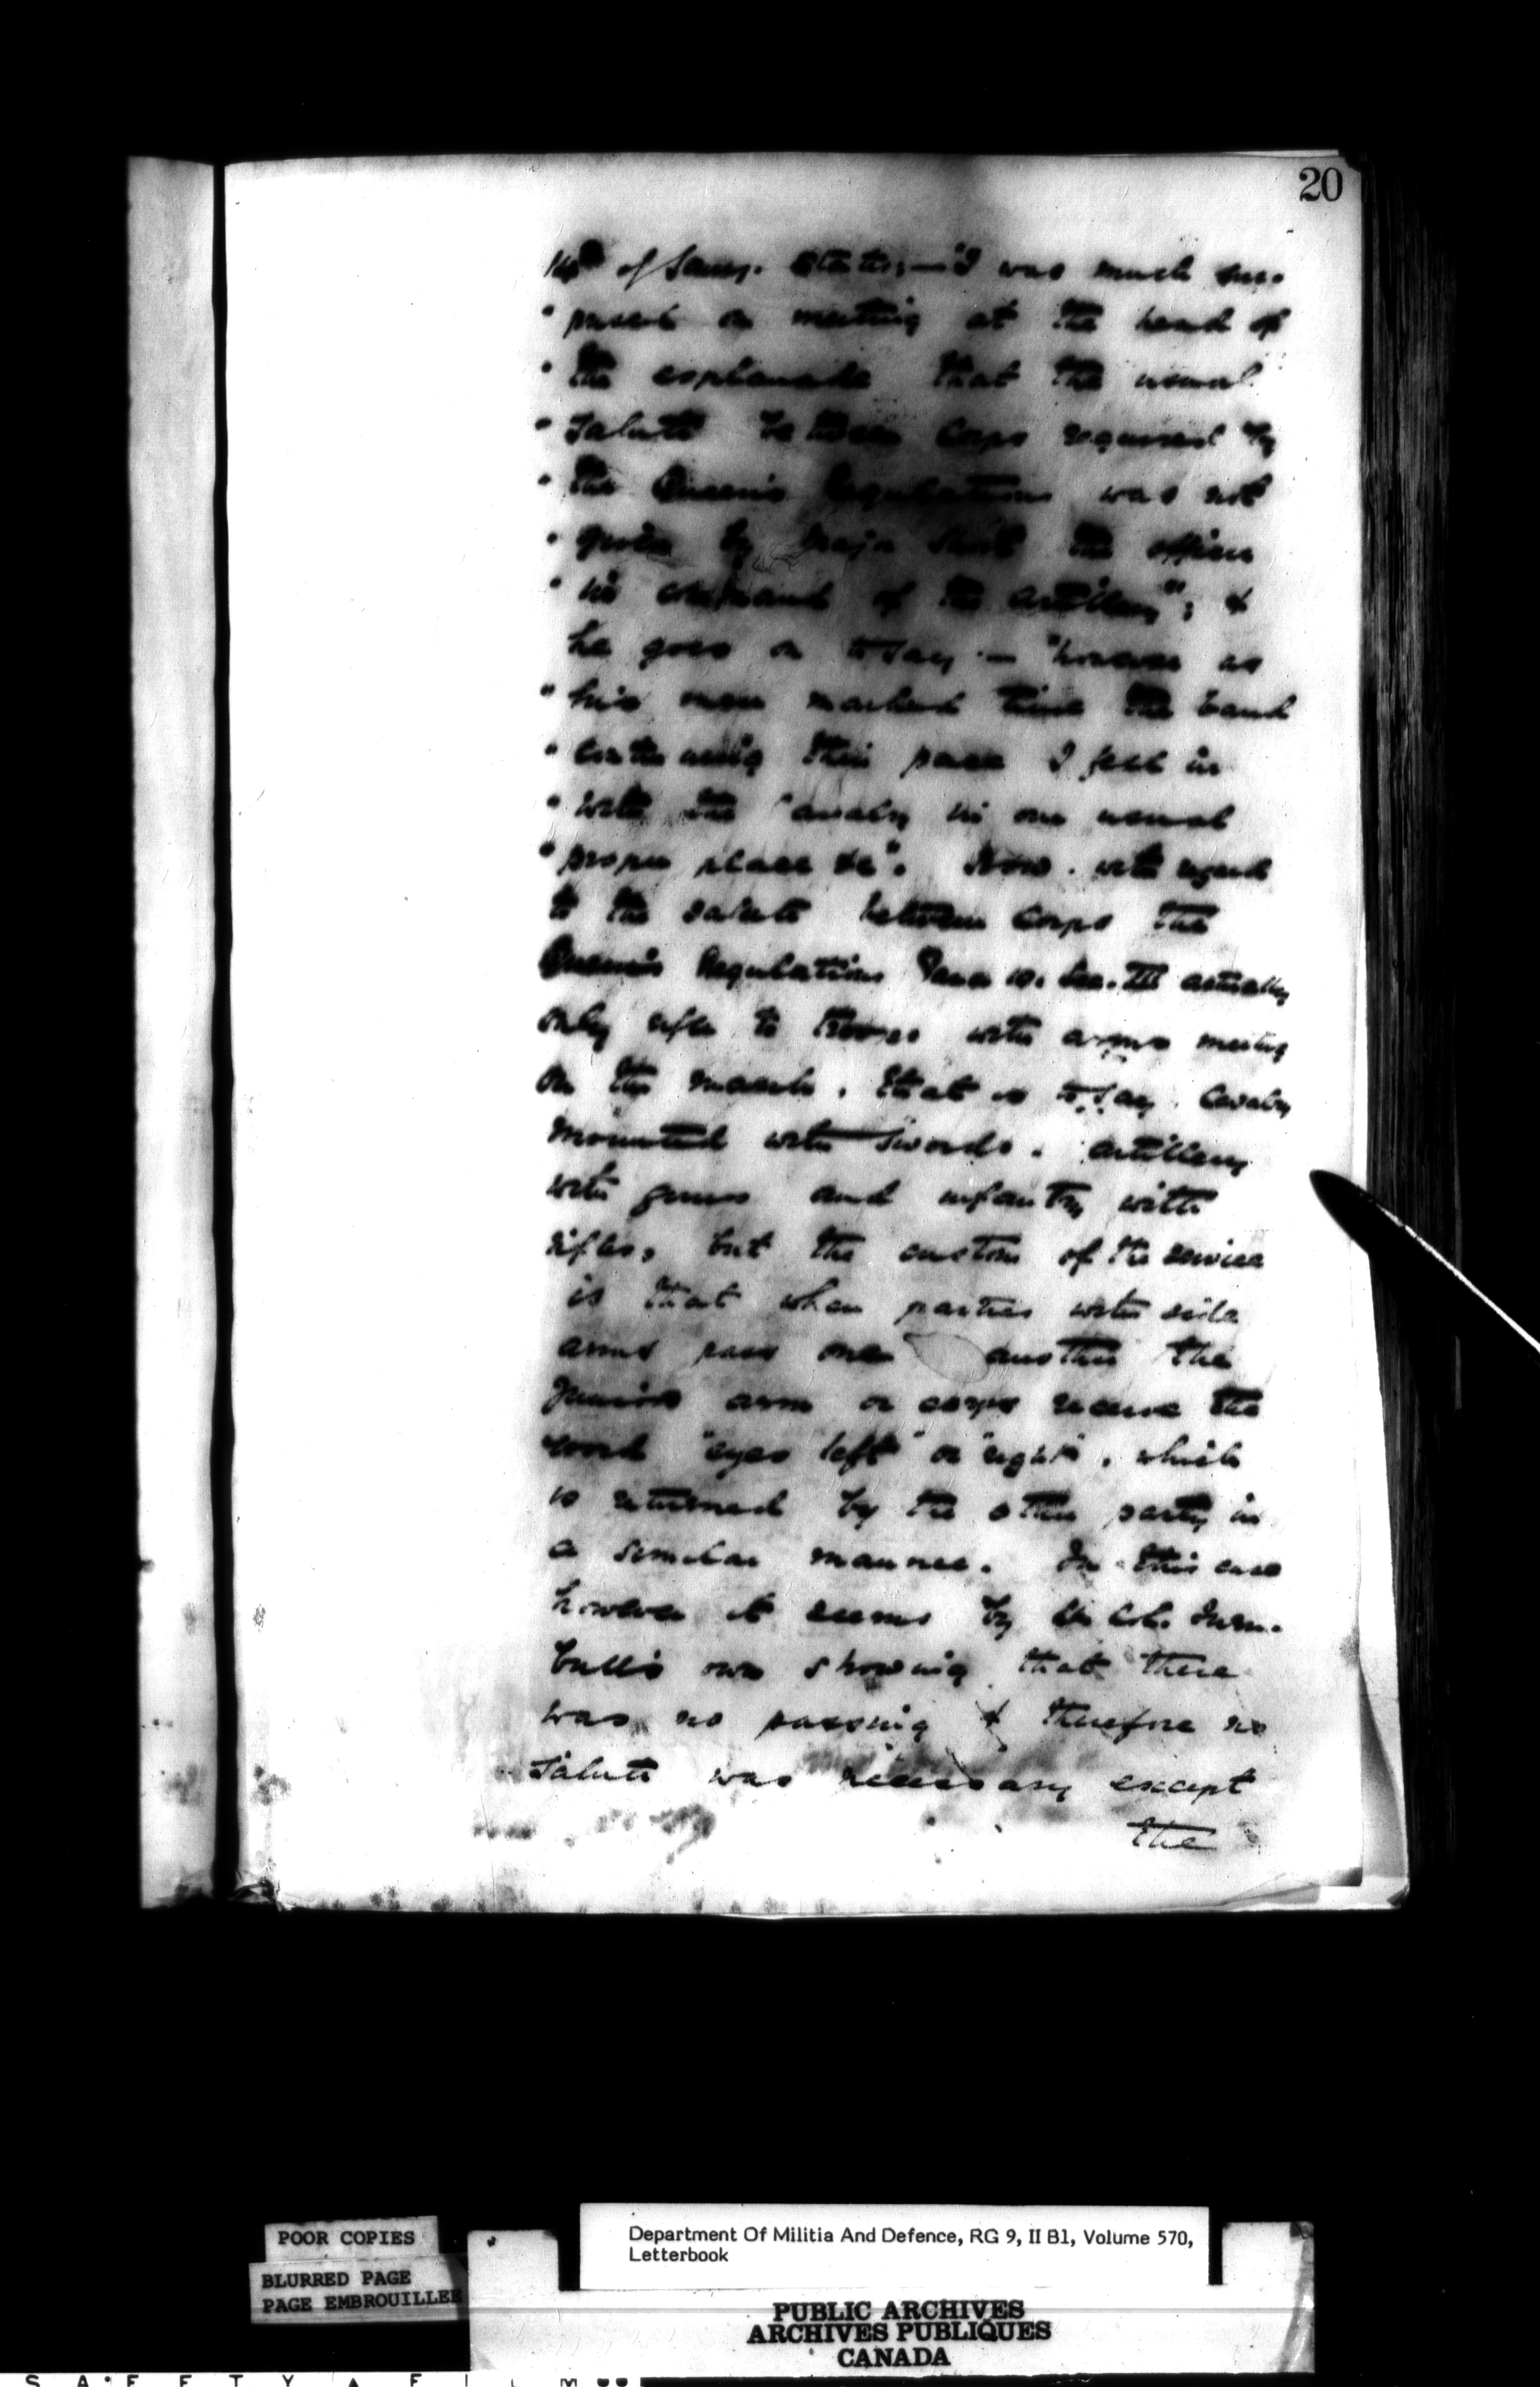 20
of states;—"I was much sur-
" prised on meeting at the head of
" the esplanade that the usual
" salute between Corps required by
" the Queen's Regulations was not
" given by Major Short the officer
" in command of the Artillery"; &
he goes on to say — "however as
" his men marked time the band
" continuing their pace I fell in
" with the Cavalry in our usual
" proper place &c". Now with regard
to the salute between Corps the
Queen's Regulations Para 10. Sec. III actually
only refer to troops with arms meeting
on the march, that is to say, Cavalry
mounted with swords, Artillery
with guns and infantry with
rifles, but the custom of the service
is that when parties with side
arms pass one another the
junior arm or corps receive the
word "eyes left" or "right", which
is returned by the other party in
a similar manner. In this case
however it seems by Lt. Col. Turn-
bull's own showing that there
was no passing & therefore no
salute was necessary except
the
POOR COPIES
BLURRED PAGE
PAGE EMBROUILLEE
Department Of Militia And Defence, RG 9, II B1, Volume 570,
Letterbook
PUBLIC ARCHIVES
ARCHIVES PUBLIQUES
CANADA
S A F E T Y A F I L M